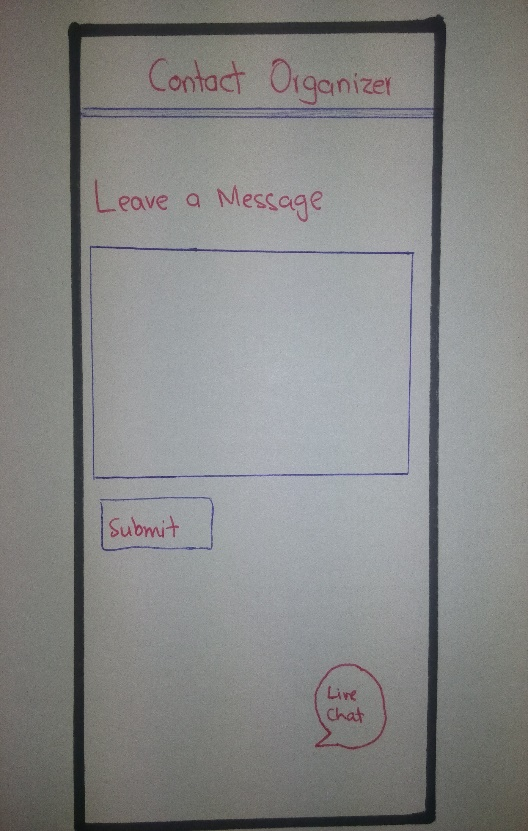 Contact Organizer
Leave a Message
Submit
Live
Chat